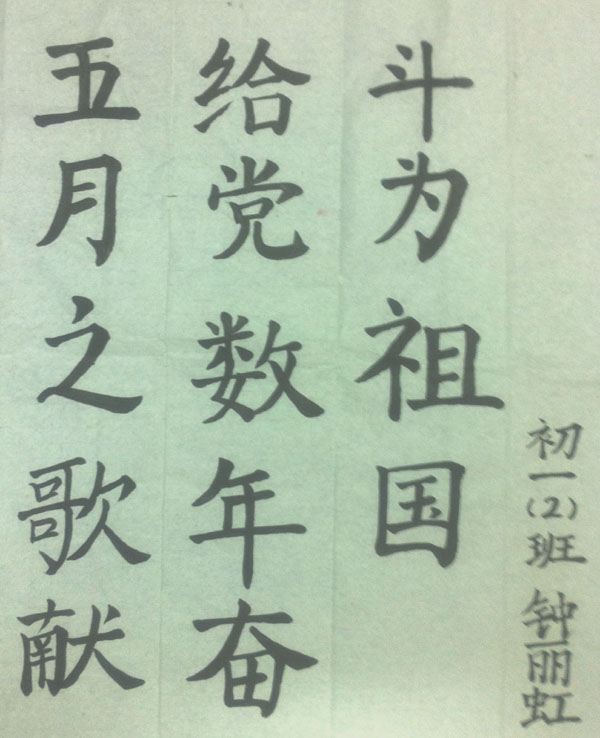 五月之歌献
给党数年奋
斗为祖国
初一(2)班 钟丽虹